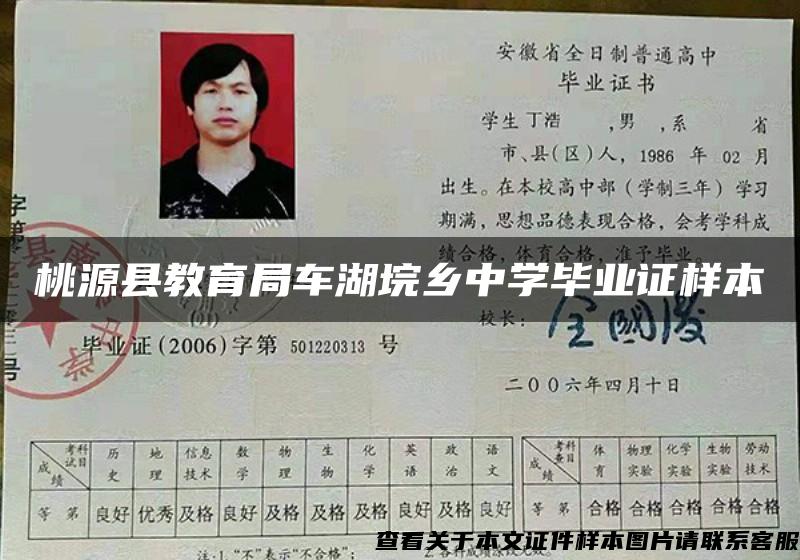 安徽省全日制普通高中
毕业证书
学生 丁浩 ,男 ,系 省
市、县(区)人, 1986 年 02 月
出生。在本校高中部（学制三年）学习
期满，思想品德表现合格，会考学科成
绩合格，体育合格，准予毕业。
桃源县教育局车湖垸乡中学毕业证样本
校长：
毕业证(2006)字第 501220313 号
二〇〇六年四月十日
成绩 考试科目 历史 地理 信息技术 数学 物理 生物 化学 英语 政治 语文
等第 良好 优秀 及格 良好 及格 及格 及格 良好 及格 良好
成绩 考查科目 体育 物理实验 化学实验 生物实验 劳动技术
等第 合格 合格 合格 合格 合格
注:1."不"表示"不合格"; 2.各科成绩涂改无效。
查看关于本文证件样本图片请联系客服